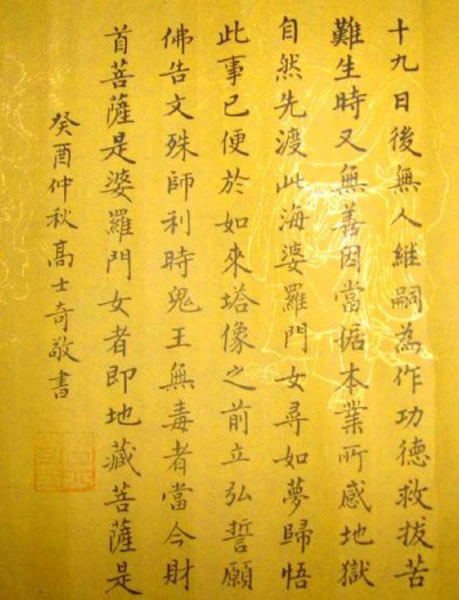 十九日後無人継嗣為作功德救拔苦
難生時又無善因當据本業所感地獄
自然先渡此海婆羅門女尋如夢歸悟
此事已便於如來塔像之前立弘誓願
佛告文殊師利時鬼王無毒者當今財
首菩薩是婆羅門女者即地藏菩薩是
癸酉仲秋髙士奇敬書